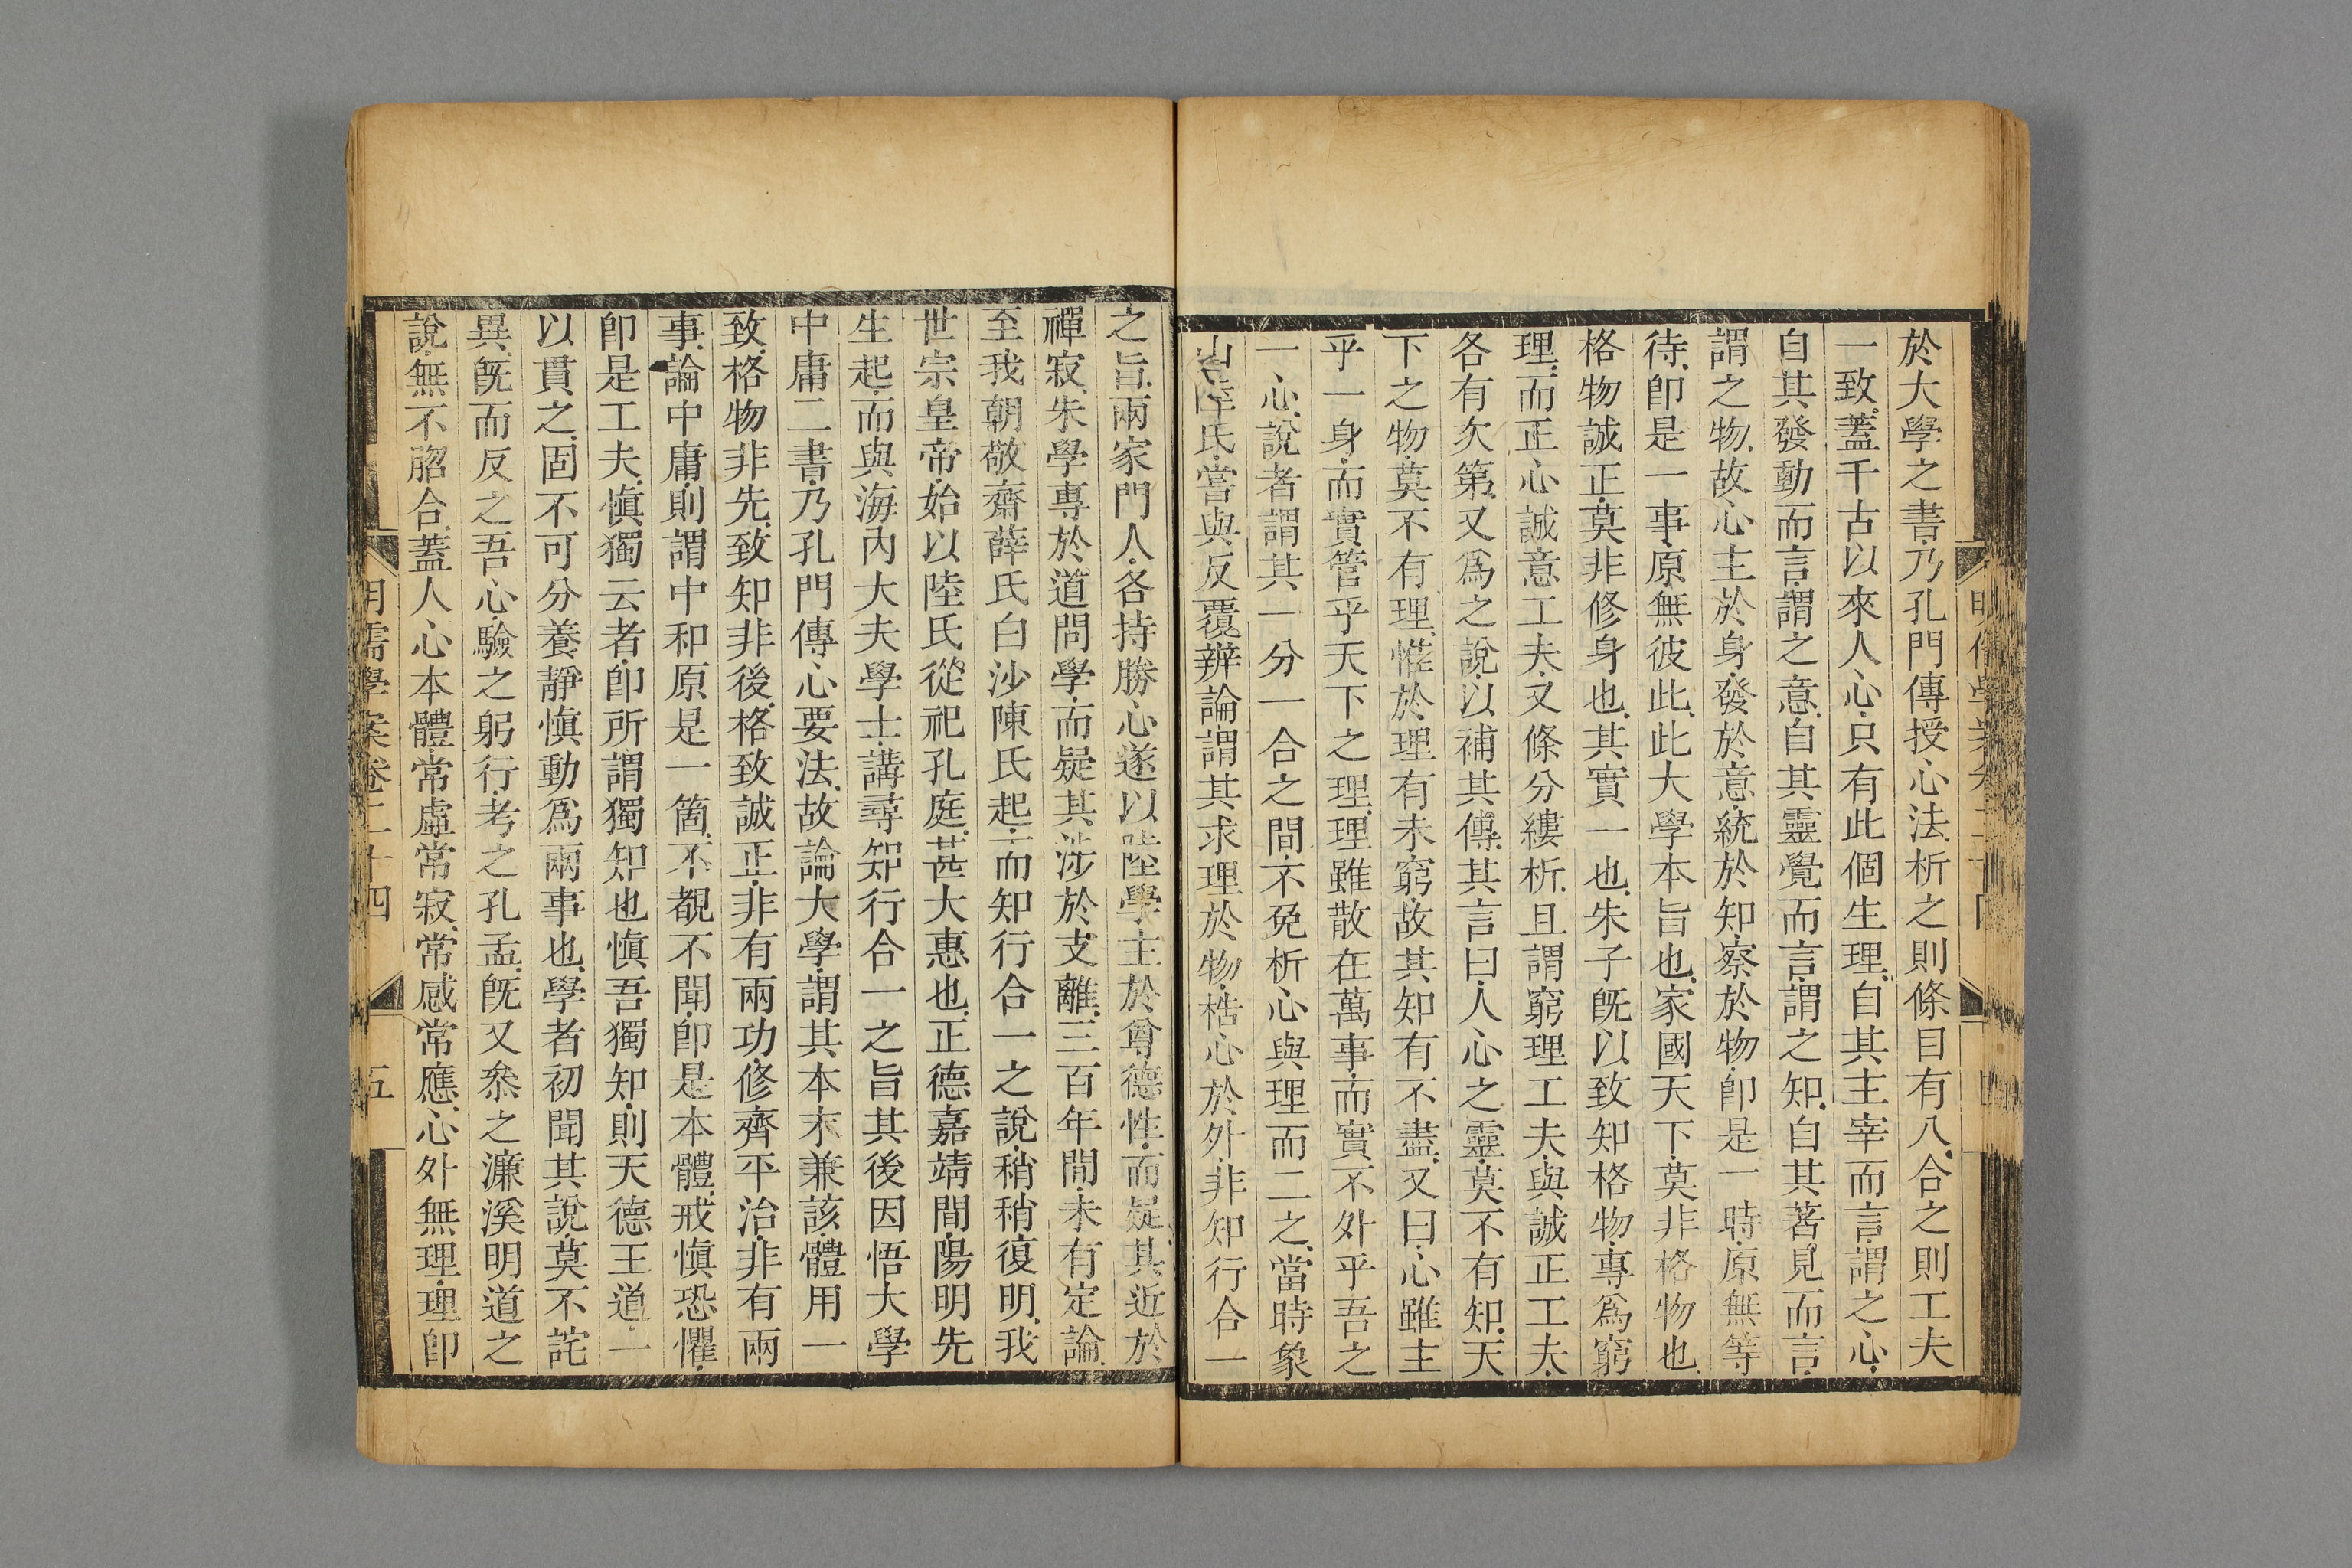 於大學之書乃孔門傳授心法析之則條目有八合之則工夫
一致蓋千古以來人心只有此個生理自其主宰而言謂之心
自其發動而言謂之意自其靈覺而言謂之知自其著見而言
謂之物故心主於身發於意統於知察於物卽是一時原無等
待卽是一事原無彼此此大學本旨也家國天下莫非格物也
格物誠正莫非修身也其實一也朱子旣以致知格物專爲窮
理而正心誠意工夫又條分縷析且謂窮理工夫與誠正工夫
各有次第又爲之說以補其傳其言曰人心之靈莫不有知天
下之物莫不有理惟於理有未窮故其知有不盡又曰心雖主
乎一身而實管乎天下之理理雖散在萬事而實不外乎吾之
一心說者謂其一分一合之間不免析心與理而二之當時象
山陸氏嘗與反覆辨論謂其求理於物梏心於外非知行合一
之旨兩家門人各持勝心遂以陸學主於尊德性而疑其近於
禪寂朱學專於道問學而疑其涉於支離三百年間未有定論
至我朝敬齋薛氏白沙陳氏起而知行合一之說稍稍復明我
世宗皇帝始以陸氏從祀孔庭甚大惠也正德嘉靖間陽明先
生起而與海內大夫學士講尋知行合一之旨其後因悟大學
中庸二書乃孔門傳心要法故論大學謂其本末兼該體用一
致格物非先致知非後格致誠正非有兩功修齊平治非有兩
事論中庸則謂中和原是一箇不覩不聞卽是本體戒愼恐懼
卽是工夫愼獨云者卽所謂獨知也愼吾獨知則天德王道一
以貫之固不可分養靜愼動爲兩事也學者初聞其說莫不詫
異旣而反之吾心驗之躬行考之孔孟旣又叅之濂溪明道之
說無不脗合蓋人心本體常虛常寂常感常應心外無理理卽
明儒學案卷二十四
五